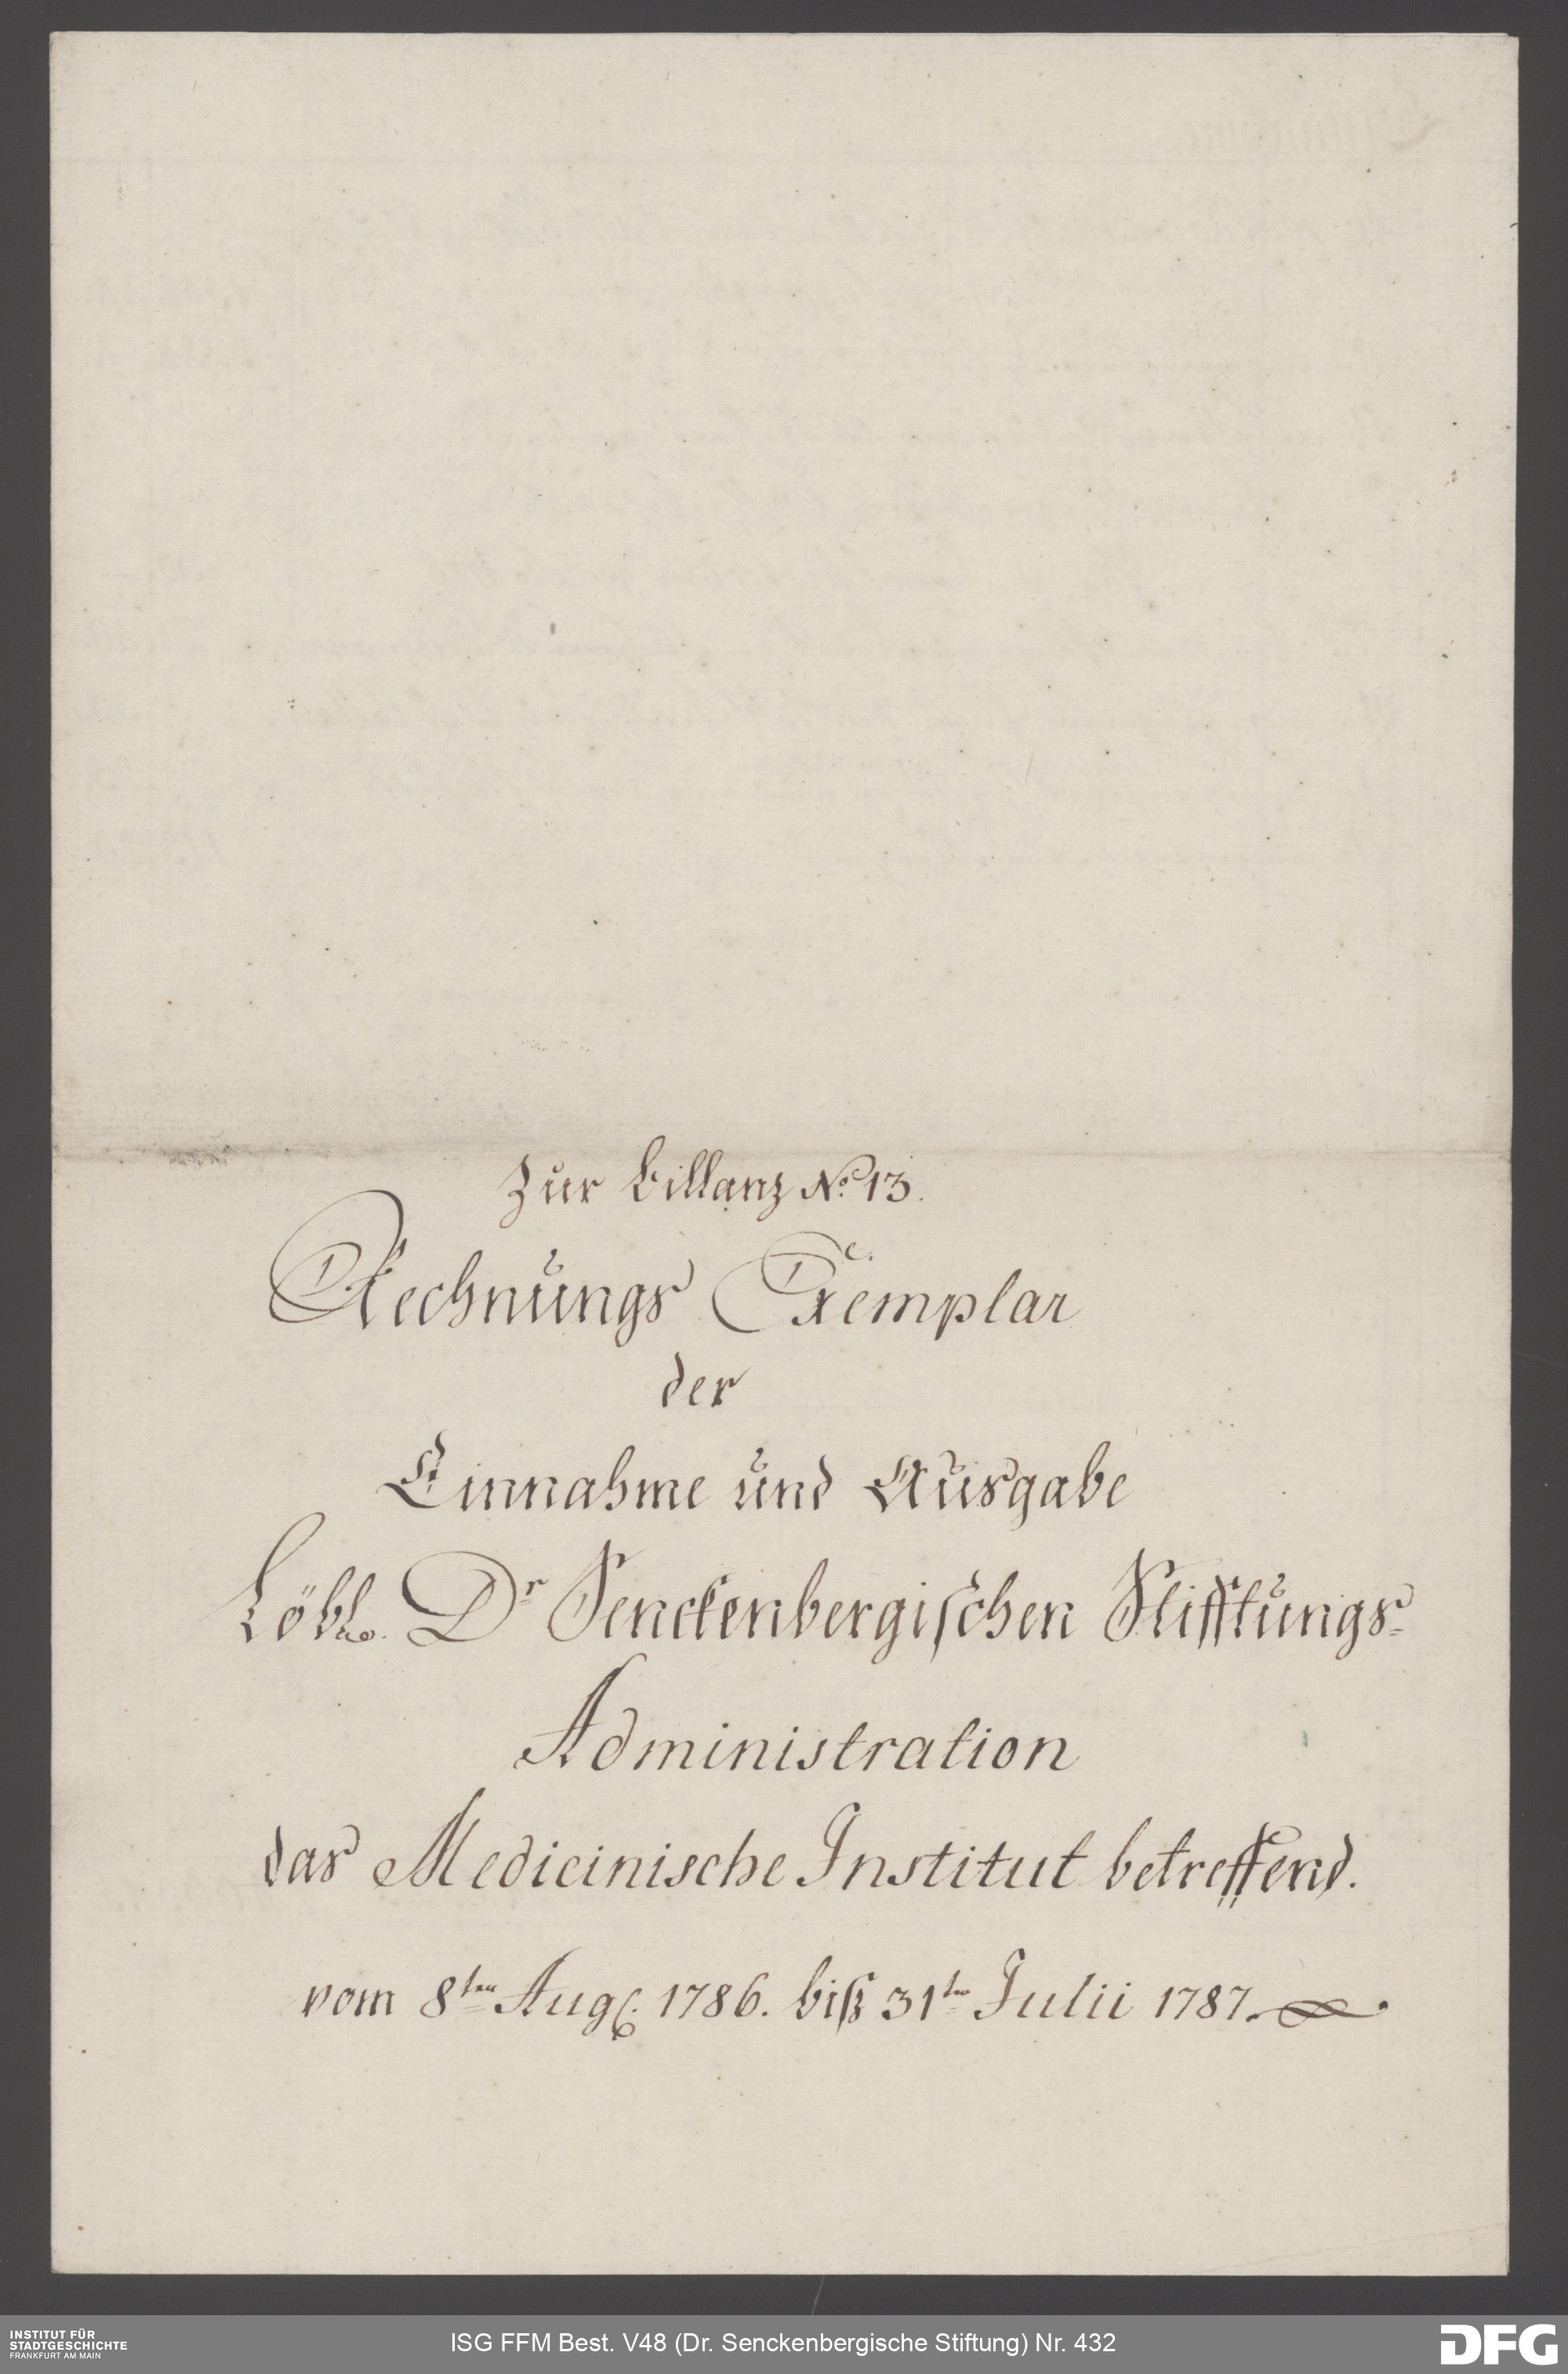 Zur Billanz No. 13.
Rechnungs Exemplar
der
Einnahme und Ausgabe
Löbl. Dr Senckenbergischen Stifftungs=
Administration
das Medicinische Institut betreffend.
vom 8ten Aug. 1786. biß 31ten Julii 1787.
INSTITUT FÜR
STADTGESCHICHTE
FRANKFURT AM MAIN
ISG FFM Best. V48 (Dr. Senckenbergische Stiftung) Nr. 432
DFG